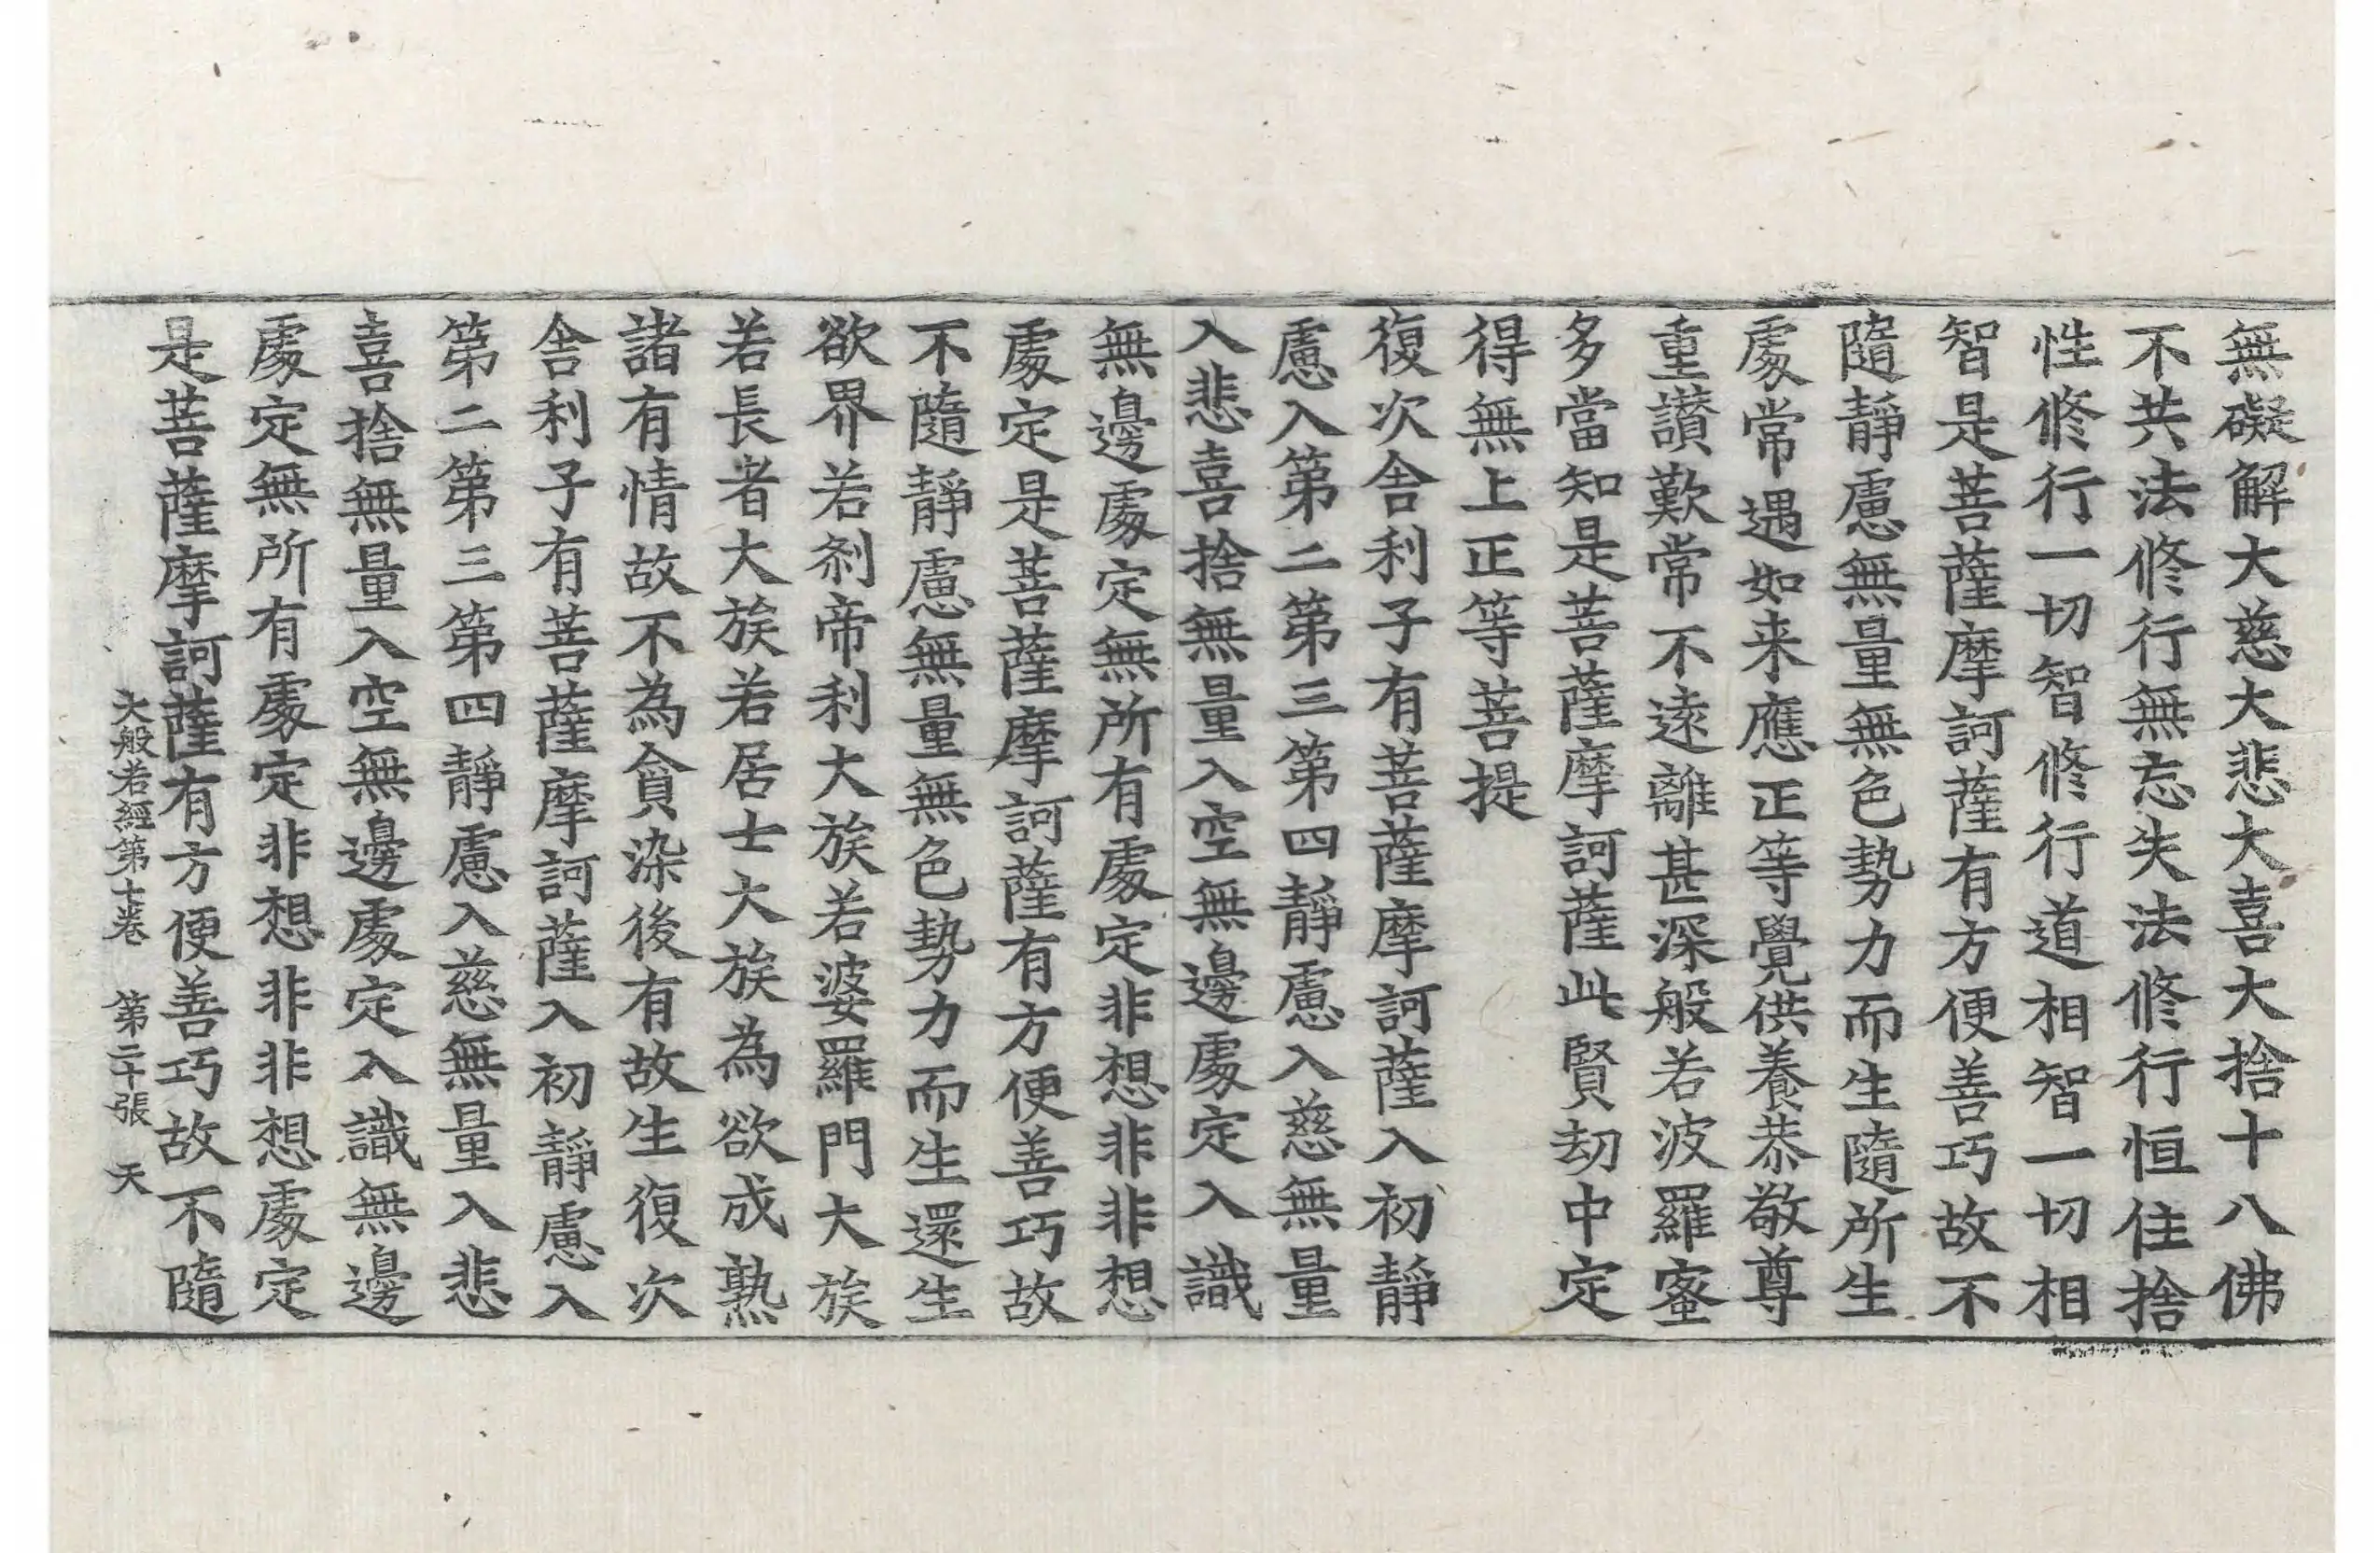 無礙解大慈大悲大喜大捨十八佛
不共法修行無忘失法修行恒住捨
性修行一切智修行道相智一切相
智是菩薩摩訶薩有方便善巧故不
隨靜慮無量無色勢力而生隨所生
處常遇如来應正等覺供養恭敬尊
重讃歎常不遠離甚深般若波羅蜜
多當知是菩薩摩訶薩此賢劫中定
得無上正等菩提
復次舍利子有菩薩摩訶薩入初靜
慮入第二第三第四靜慮入慈無量
入悲喜捨無量入空無邊處定入識
無邊處定無所有處定非想非非想
處定是菩薩摩訶薩有方便善巧故
不隨靜慮無量無色勢力而生還生
欲界若刹帝利大族若婆羅門大族
若長者大族若居士大族為欲成熟
諸有情故不為貪染後有故生復次
舍利子有菩薩摩訶薩入初靜慮入
第二第三第四靜慮入慈無量入悲
喜捨無量入空無邊處定入識無邊
處定無所有處定非想非非想處定
是菩薩摩訶薩有方便善巧故不隨
大般若經第十卷 第二十張 天